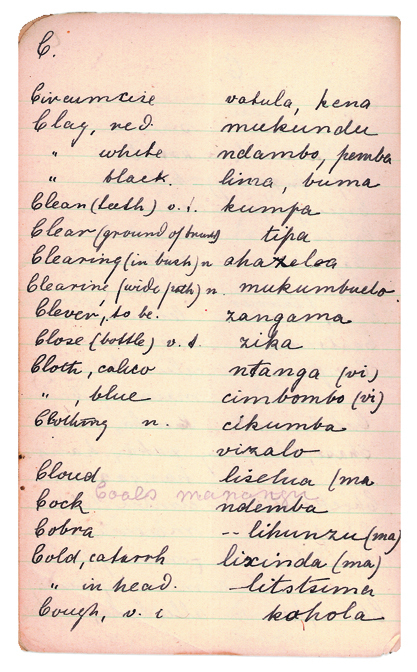 C.
Circumcise vatula, kena
Clay, red mukundu
" white ndambo, pemba
" black. lima, buma
Clean (teeth) v. t. kumpa
Clear (ground of brush) tipa
Clearing (in bush) n
Clearing (wide path) n. mukumbuelo.
Clever, to be. zangama
Close (bottle) v. t. zika
Cloth, calico ntanga (vi)
" , blue cimbombo (vi)
Clothing n. cikumba
vizalo
Cloud liselua (ma
Coals manangu
Cock ndemba
Cobra -- lihunzu (ma)
Cold, catarrh lixinda (ma)
" in head. - litstsima
Cough, v. i kohola